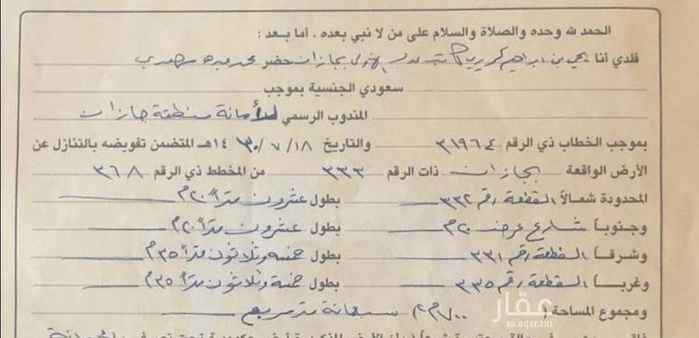 الحمد لله وحده والصلاة والسلام على من لا نبي بعده ، أما بعد :
فلدي أنا يحيى بن ابراهيم كاتب عدل بجازان حضر محمد عبده مهدي
سعودي الجنسية بموجب
المندوب الرسمي لأمانة منطقة جازان
بموجب الخطاب ذي الرقم ٣١٩٦٤ والتاريخ ١٨ / ٧ / ١٤٣٠هـ المتضمن تفويضه بالتنازل عن
الأرض الواقعة بجازان ذات الرقم ٣٣٣ من المخطط ذي الرقم ٣٦٨
المحدودة شمالاً القطعة رقم ٣٣٢ بطول عشرون متراً ٢٠م
وجنوباً شارع عرض ٢٠م بطول عشرون متراً ٢٠م
وشرقاً القطعة رقم ٣٣١ بطول خمسة وثلاثون متراً ٣٥م
وغرباً القطعة رقم ٣٣٥ بطول خمسة وثلاثون متراً ٣٥م
ومجموع المساحة (٧٠٠م٢) سبعمائة متر مربع
عقار
sa.aqar.fm